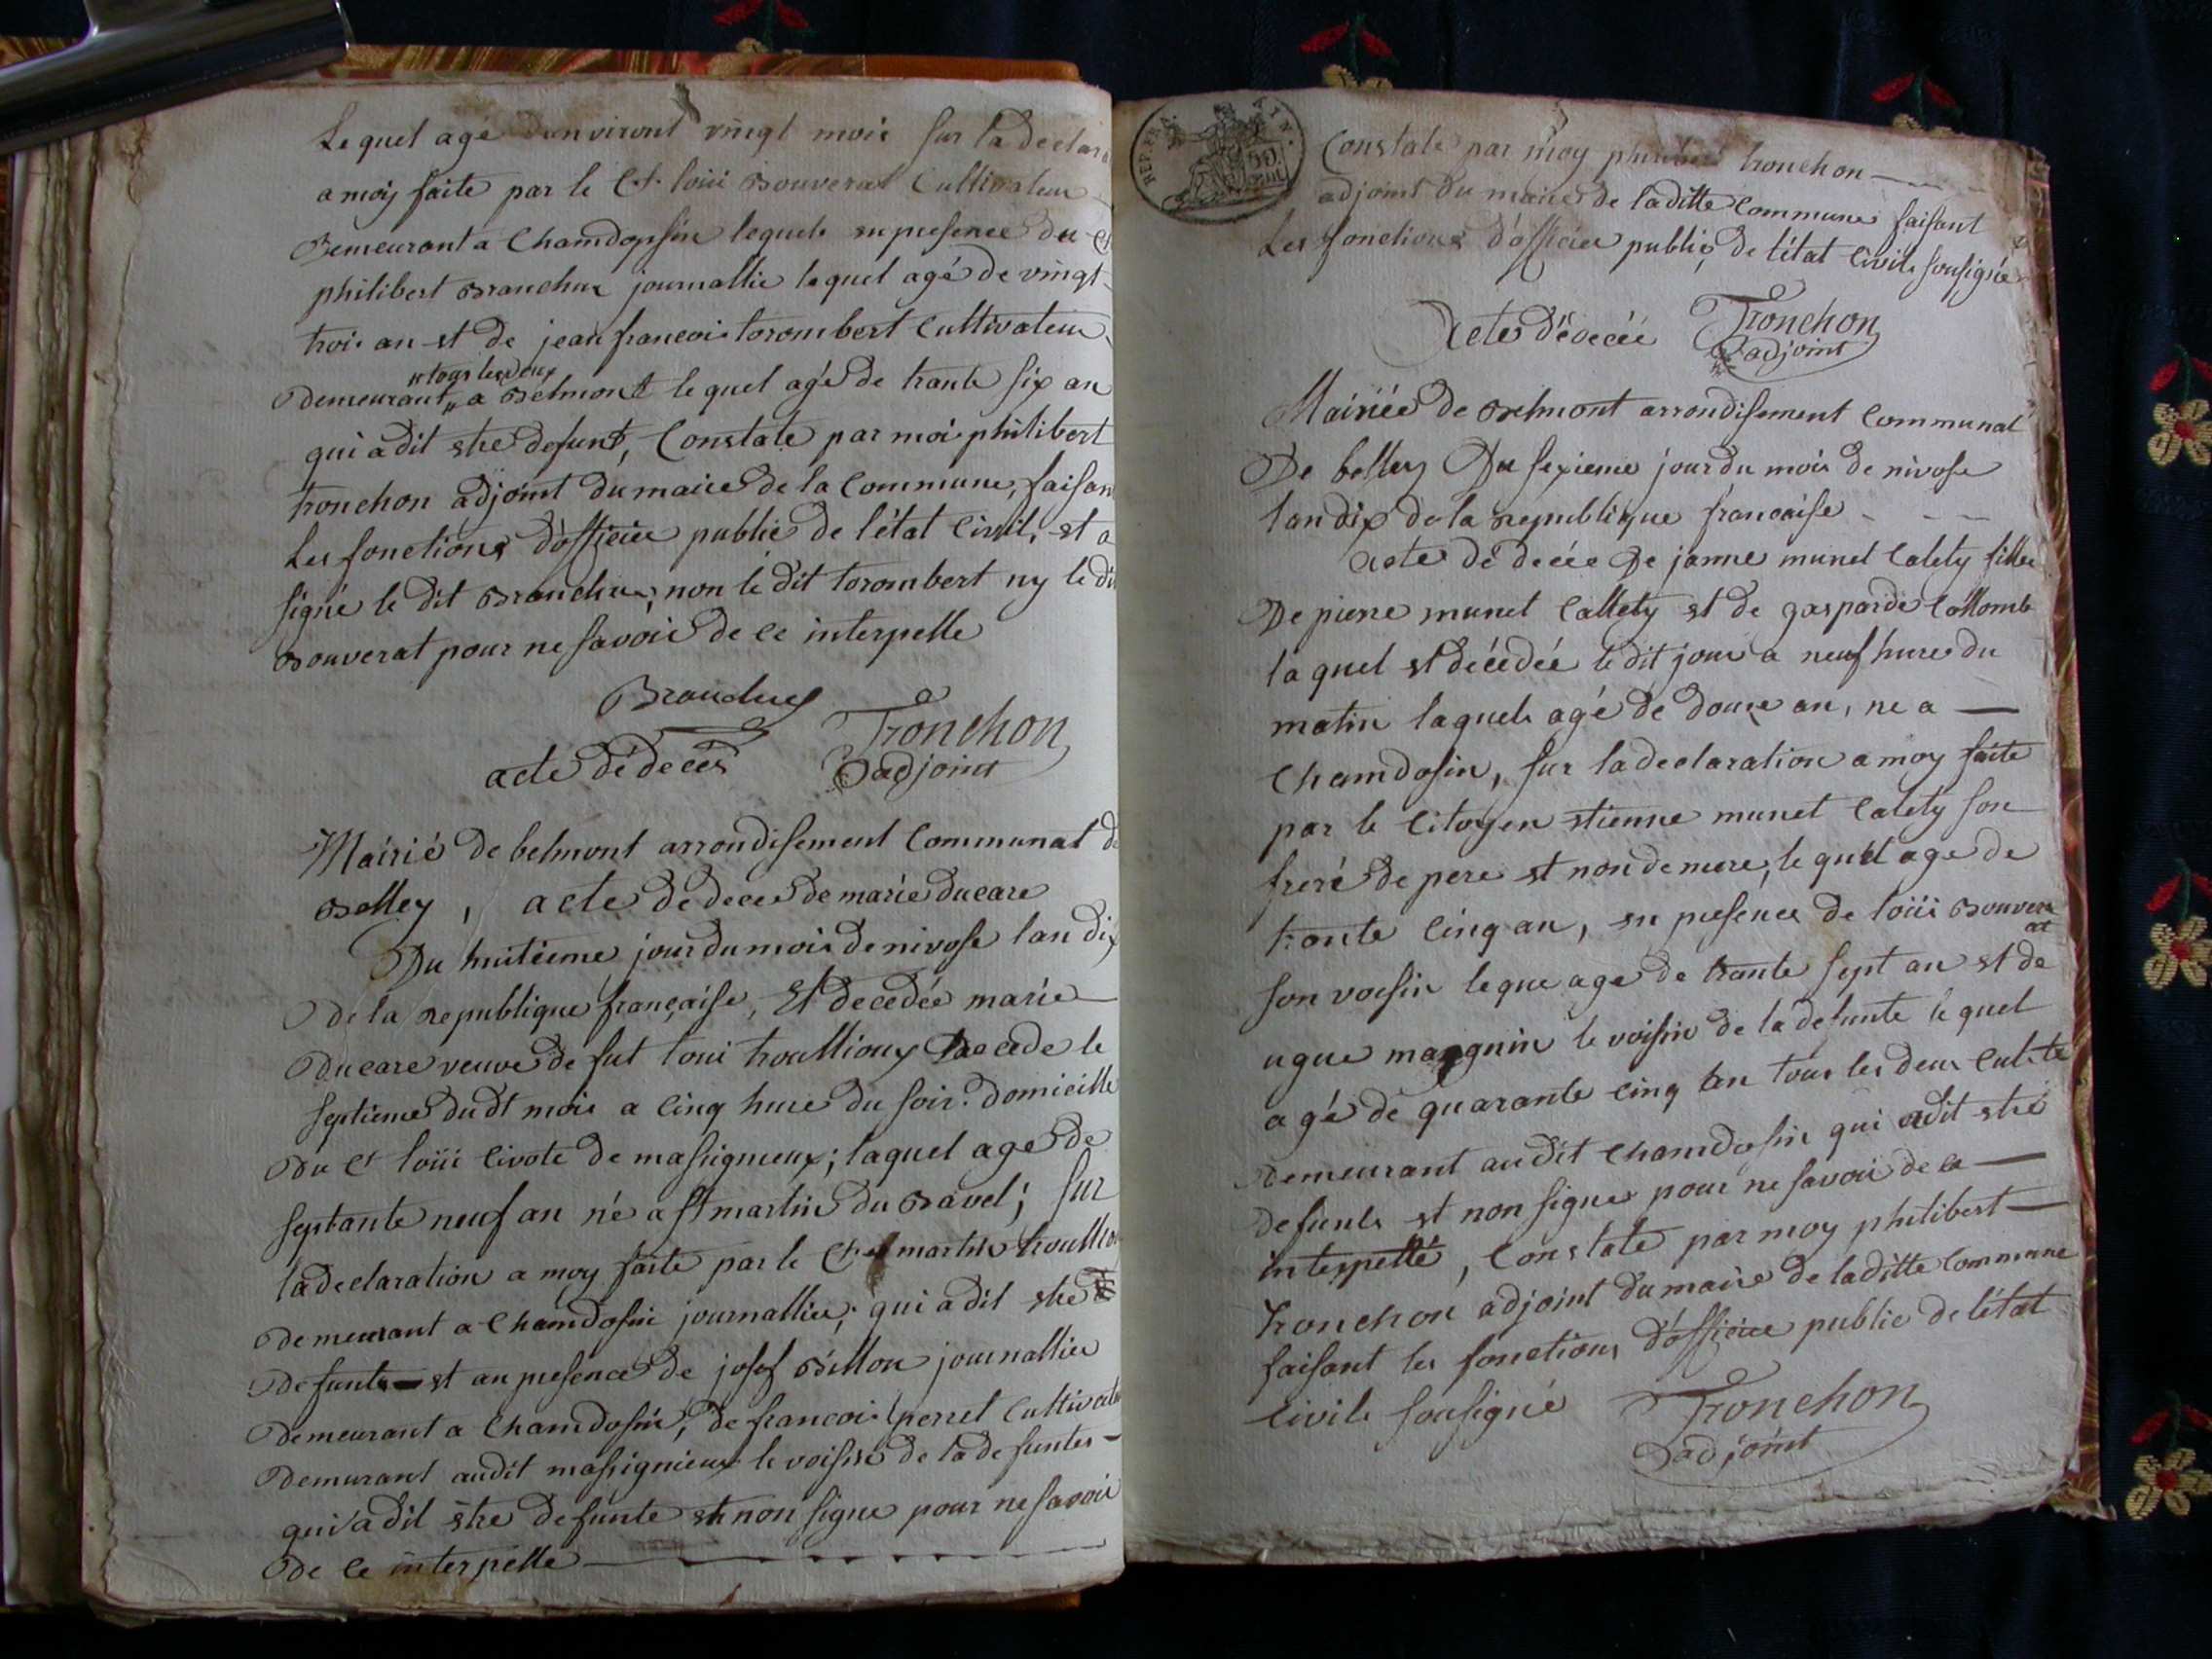 Le quel agé denviront vingt mois sur la declara
a moy faite par le Ct. loüi Bouverat Cultivateur
Demeurant a Chamdopsin lequele en presence du Ct
philibert Branchux journallie le quel agé de vingt
trois an et de jean francois torombert Cultivateur
"tous les deux
Demeurant " a Belmont le quel agé de trante six an
qui a dit etre defunt, Constate par moi philibert
tronchon adjoint du maire de la Commune, faisan
Les fonctions d'officier public de l'état Civil, et a
signé le dit Branchux, non le dit torombert ny le dit
Bouverat pour ne savoir de ce interpelle
Branchux
Tronchon
adjoint
acte de decès
Mairié de belmont arrondisement Communal de
Belley, acte de deces de marie ducare
Du huitieme jour du mois de nivose lan dix
de la republique française, Et decedée marie
Ducare veuve de fut loui troullioux decede le
septieme dudt mois a cinq hure du soir. domicille
Du Ct loüi civote de massigneux; laquel age de
septante neuf an né a st martin du Bavel; sur
la declaration a moy faite par le Ct martin troullio
demeurant a Chamdosin journallier; qui a dit etre
defunte et an presence de josef Billon journallier
demeurant a Chamdosin, de francois perret Cultivate
Demurant audit massignieux le voisin de la defuntes
qui a dit être defunte et non signe pour ne savoir
de ce interpelle
REP. FRA. 50
Constate par moy philibert tronchon
adjoint du maire de laditte Commune faisant
Les fonctions d'officier public de l'état Civile sousignée
Tronchon
adjoint
Acte de decée
Mairiée de Belmont arrondisement Communal
De belley Du sexieme jour du mois de nivose
lan dix de la republique francaise
acte de decée de janne munet Catety fillee
De pierre munet Cattety et de gasparde Collomb
la quel et décédée le dit jour a neuf hures du
matin laquele agé de douze an, ne a
Chamdosin, sur la declaration a moy faite
par le Citoyen etienne munet Catety son
freré de pere et non de mere, le quel age de
trante cinq an, en presence de loüi Bouver
at
son voisin le que age de trante sept an et de
ugue mangnin le voisin de la defunte le quel
agé de quarante cinq an tous les deux Culte
demeurant audit Chamdosin qui adit etre
defunte et non signer pour ne savoir de ce
interpellé, Constate par moy philibert
tronchon adjoint du maire de laditte Commune
faisant les fonctions d'officier public de létat
Civile sousigné
Tronchon
adjoint